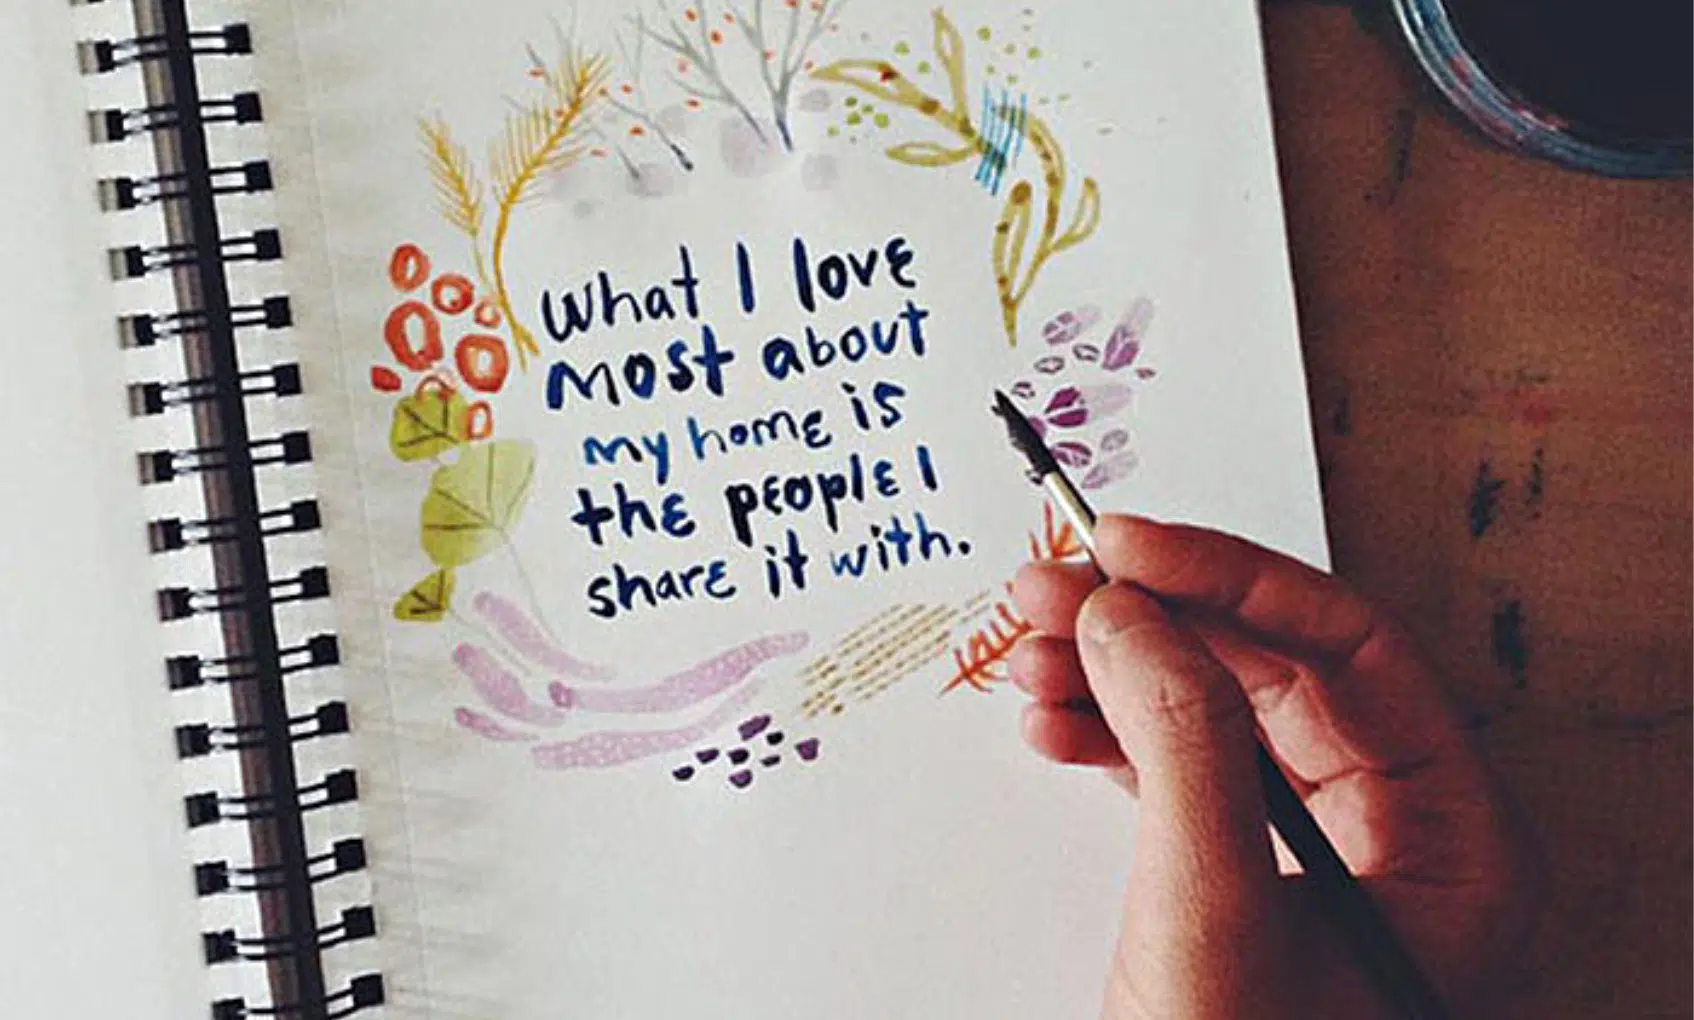 What I love
most about
my home is
the people I
share it with.